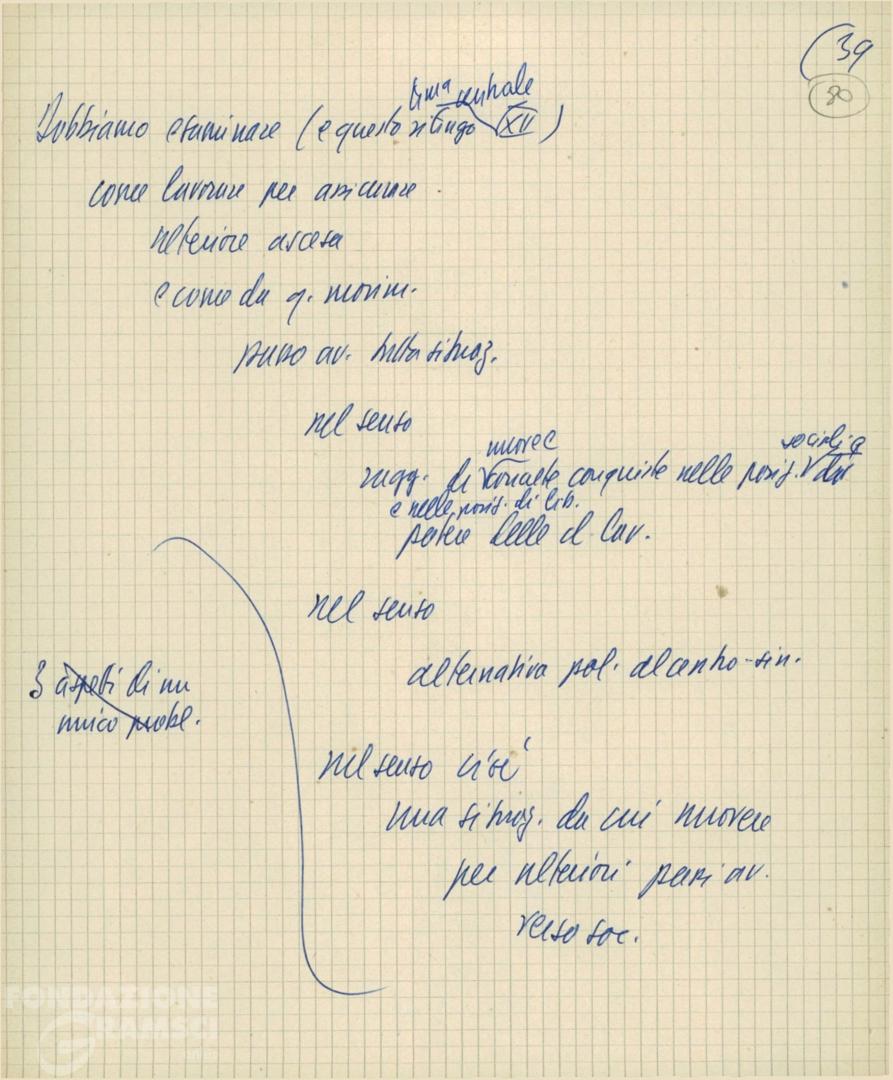 39
80
tema centrale
Dobbiamo esaminare (e questo ritengo XV)
come lavorare per assicurare
ulteriore ascesa
e come da q. movim.
passo av. tutta situaz.
nel senso
nuove e
sociali e
ragg. di concrete conquiste nelle posiz. da
e nelle posiz. di lib.
potere delle cl. lav.
nel senso
alternativa pol. al centro-sin.
3 aspetti di un
unico probl.
nel senso cioè
una situaz. da cui muovere
per ulteriori passi av.
verso soc.
FONDAZIONE
GRAMSCI